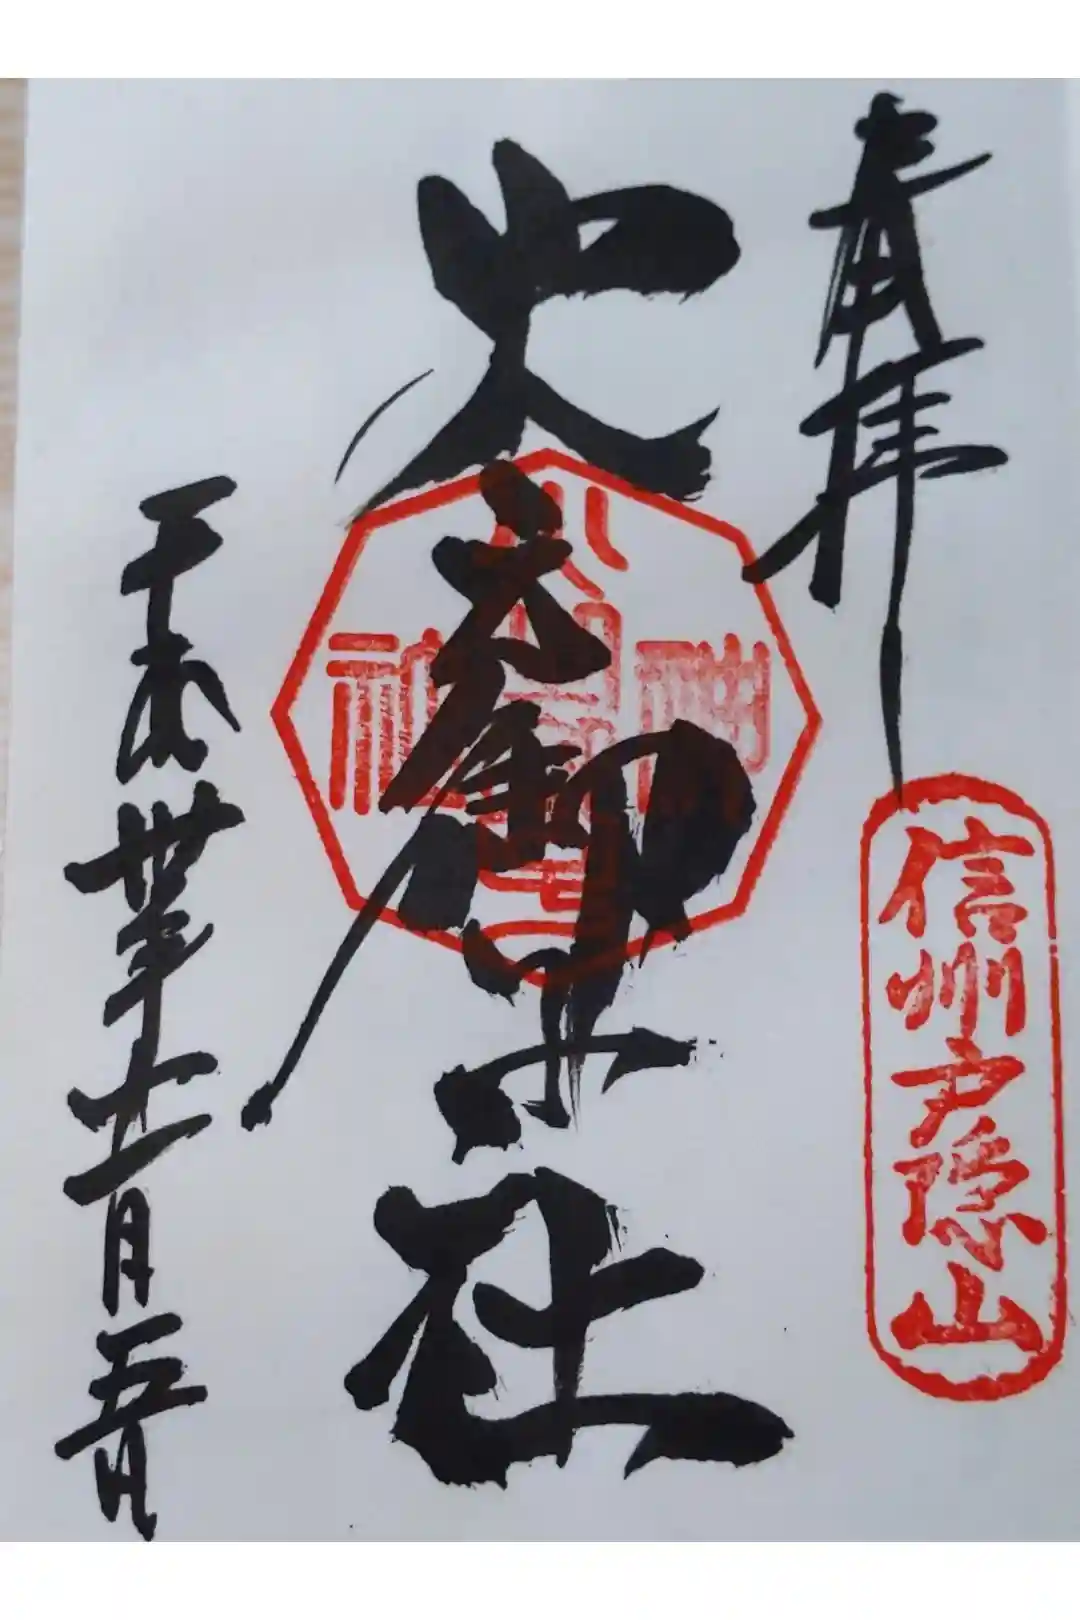 奉拝
信州戸隠山
火之御子社
平成丗年十一月五日